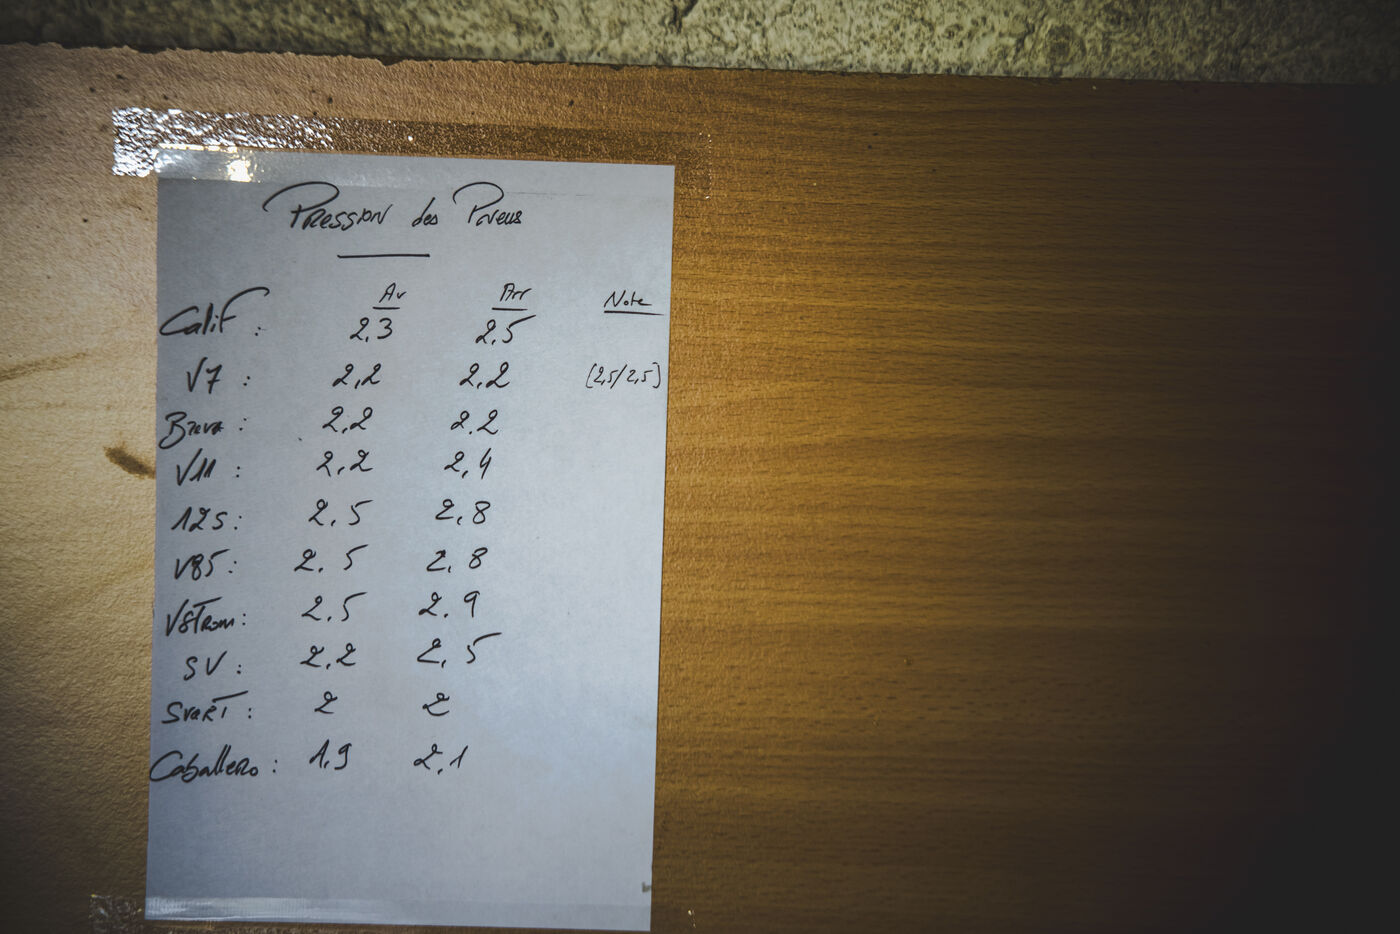 Pression des Pneus
Av Arr Note
Calif : 2,3 2,5
V7 : 2,2 2,2 (2,5/2,5)
Breva : 2,2 2.2
V11 : 2,2 2,4
125 : 2,5 2,8
V85 : 2,5 2,8
VSTrom : 2,5 2.9
SV : 2,2 2,5
SvarT : 2 2
Caballero : 1,9 2,1